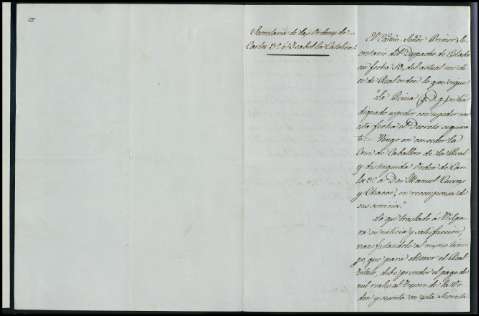 Secretaria de las Ordenes de
Carlos 3º é Isabel la Catolica
El Exmo. Señor Primer Se-
cretario del Despacho de Estado
con fecha 10, del actual me di-
ce de Real orden lo que sigue
"La Reina (q. D. g.) se ha
dignado expedir con
esta fecha el Decreto siguien-
te = Vengo en conceder la
Cruz de Caballero de la Real
y distinguida Orden de Car-
los 3º á Don Manuel
y en recompensa de
sus servicios."
Lo que traslado á V. S. pa-
ra su noticia y satisfaccion,
manifestandole al mismo tiem-
po que para obtener el Real
titulo, debe preceder el pago de
mil reales al Tesoro de la Or-
den y